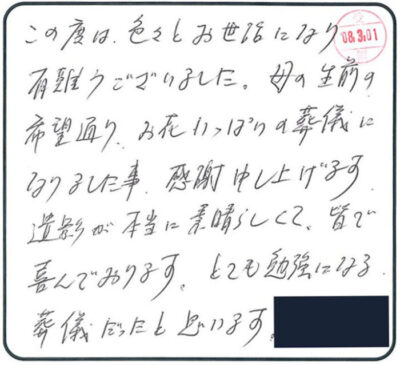 この度は、色々とお世話になり
08.3.01
有難うございました。母の生前の
希望通り、お花いっぱいの葬儀に
なりました事、感謝申し上げます。
遺影が本当に素晴らしくて、皆で
喜んでおります。とても勉強になる
葬儀だったと思います。